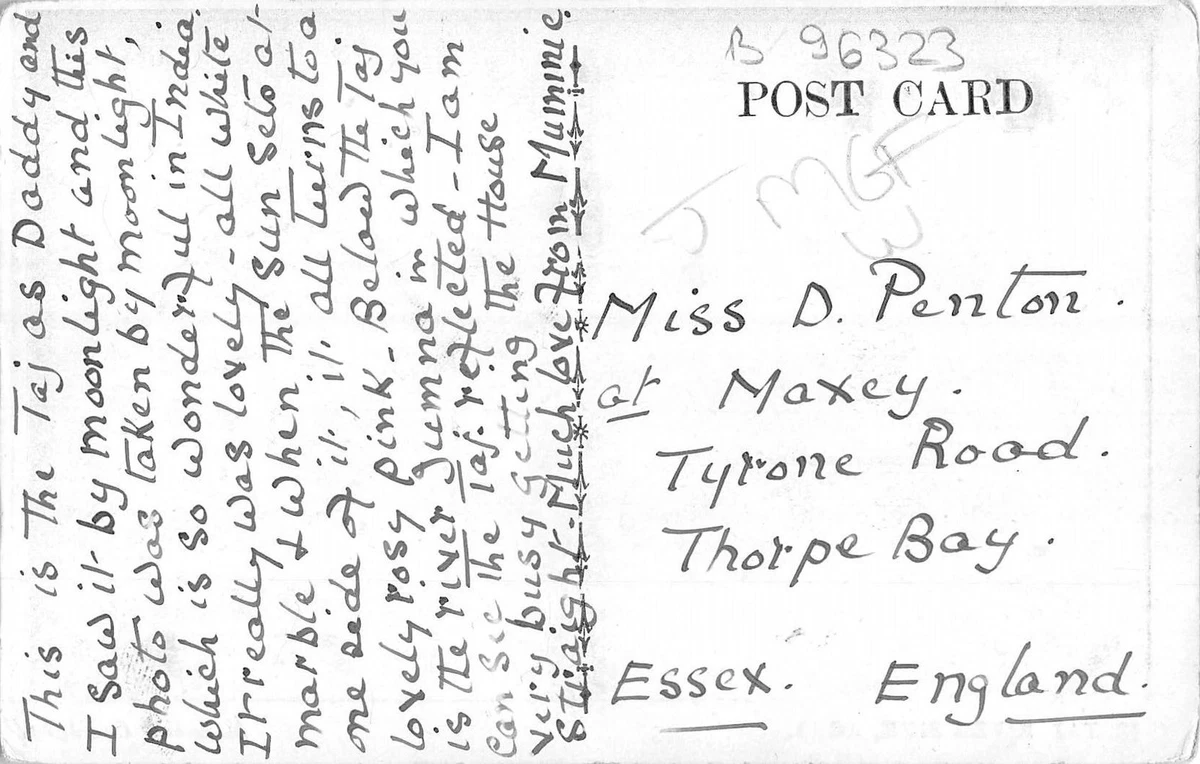 This is the Taj as Daddy and
I saw it by moonlight and this
photo was taken by moonlight,
which is so wonderful in India.
It really was lovely - all white
marble & when the sun sets at
one side of it, it all turns to a
lovely rosy pink - Below the Taj
is the river Jumna in which you
can see the Taj reflected - I am
very busy getting the House
straight - Much love from Mummie.
B 96323
POST CARD
Miss D. Penton.
at Maxey.
Tyrone Road.
Thorpe Bay.
Essex. England.